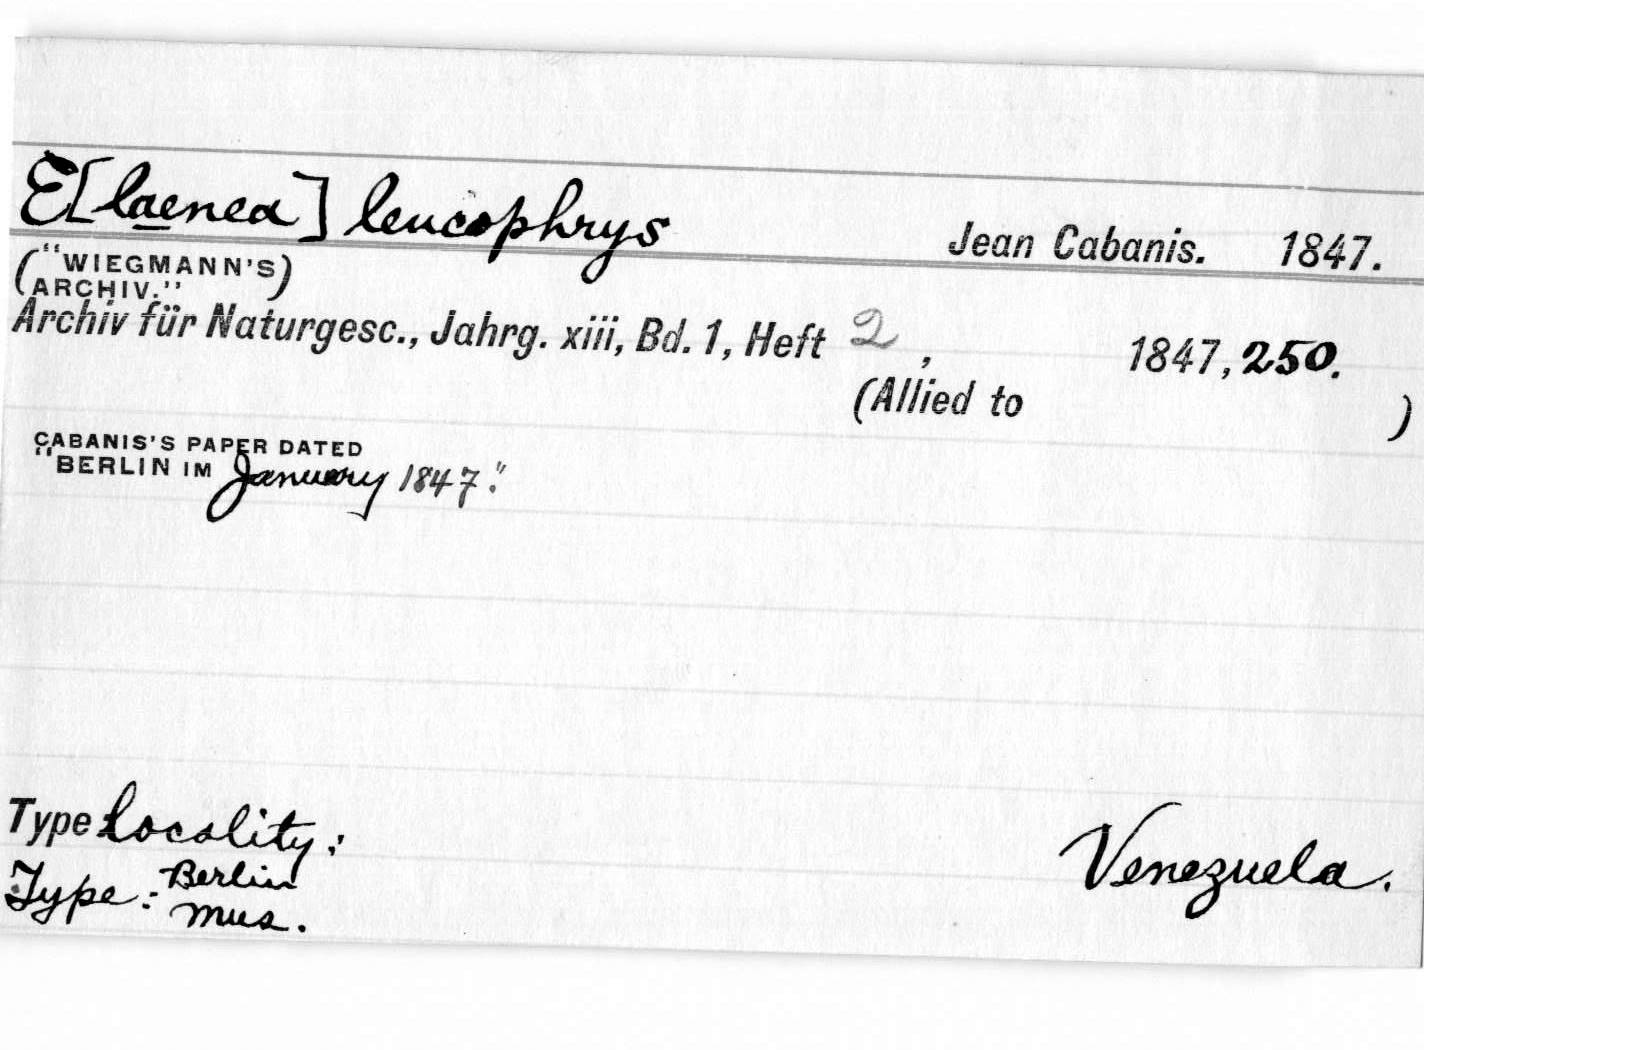 E[laenea] leucophrys Jean Cabanis. 1847.
("WIEGMANN'S)
(ARCHIV.")
Archiv für Naturgesc., Jahrg. xiii, Bd. 1, Heft 2, 1847, 250.
(Allied to )
CABANIS'S PAPER DATED
"BERLIN IM January 1847."
Type locality: Venezuela.
Type: Berlin
Mus.